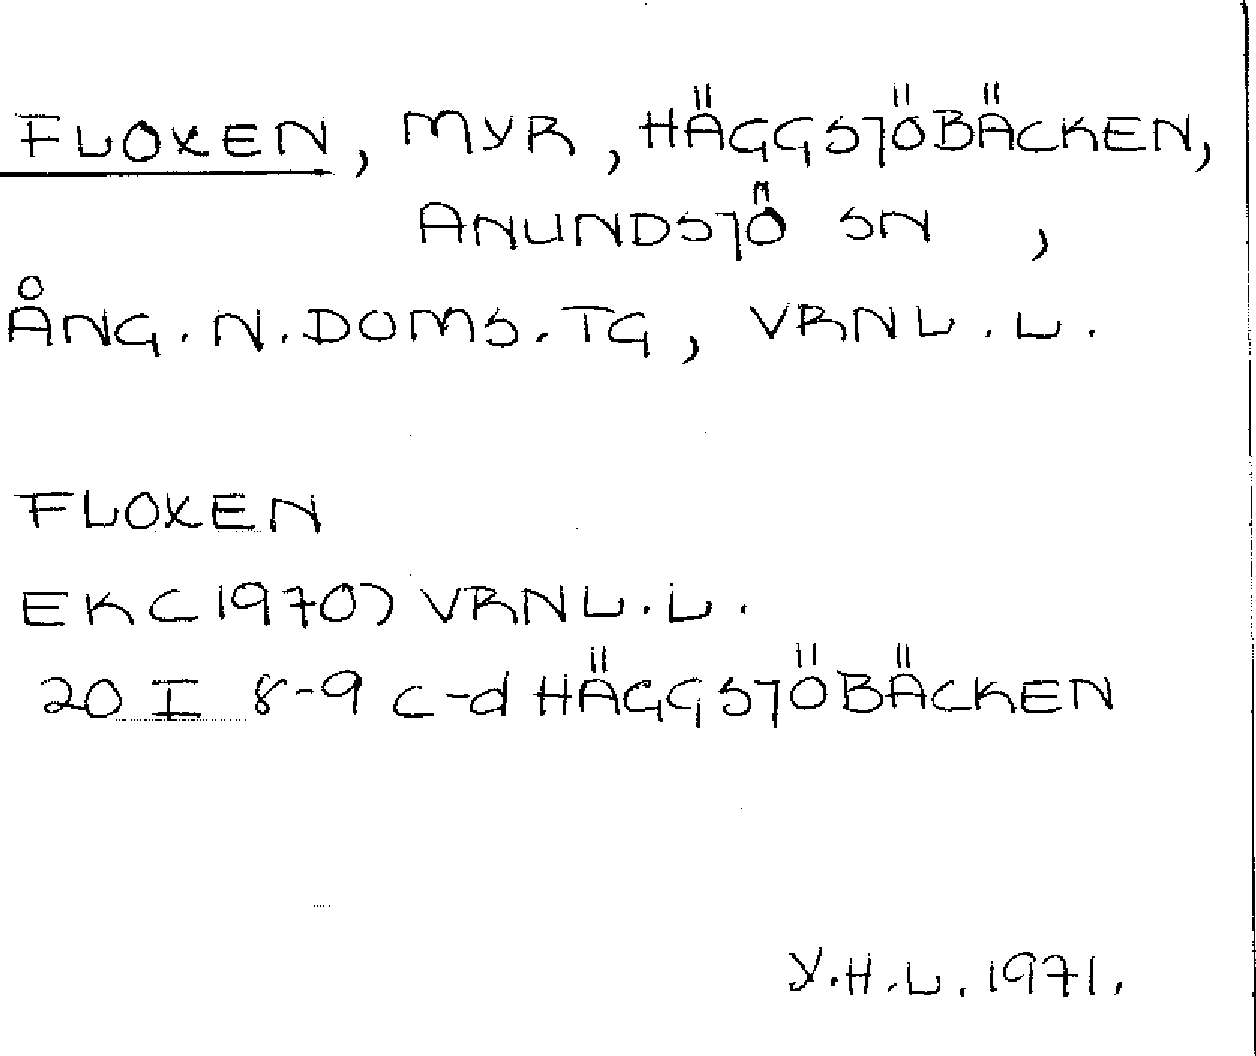 FLOXEN, MYR, HÄGGSJÖBÄCKEN,
ANUNDSJÖ SN ,
ÅNG. N. DOMS. TG, VRNL. L.
FLOXEN
EK (1970) VRNL. L.
20 I 8-9 c-d HÄGGSJÖBÄCKEN
Y.H.L. 1971.